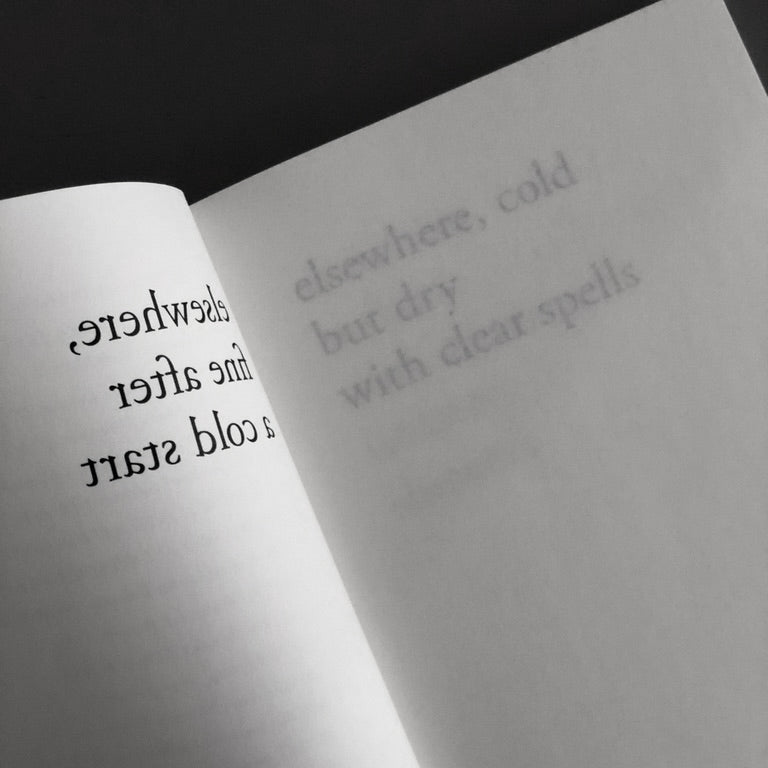 elsewhere,
fine after
a cold start
elsewhere, cold
but dry
with clear spells